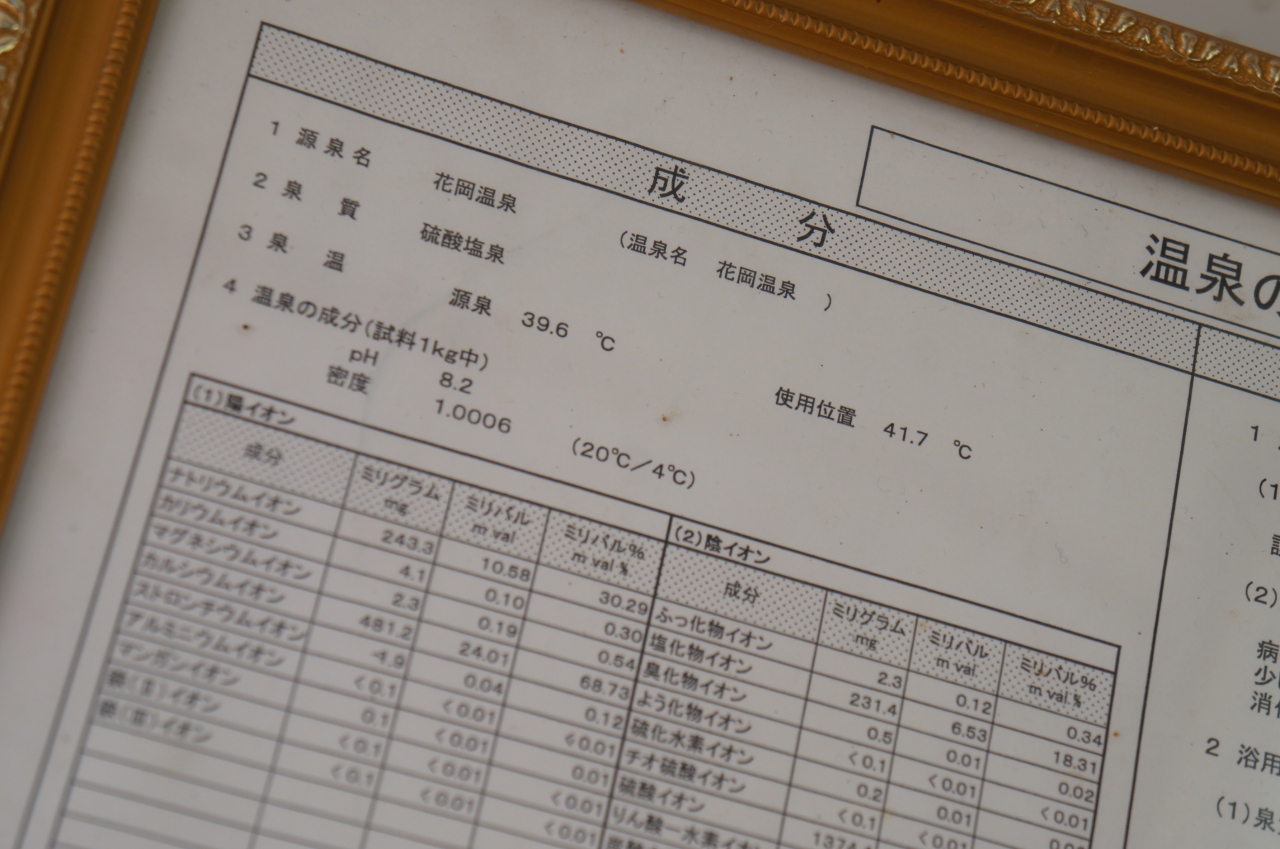 温泉の
成 分
1 源泉名 花岡温泉 (温泉名 花岡温泉 )
2 泉 質 硫酸塩泉
3 泉 温 源泉 39.6 ℃ 使用位置 41.7 ℃
4 温泉の成分(試料1kg中)
pH 8.2
密度 1.0006 (20℃/4℃)
(1)陽イオン
成分 ミリグラム mg ミリバル m val ミリバル% m val %
ナトリウムイオン 243.3 10.58 30.29
カリウムイオン 4.1 0.10 0.30
マグネシウムイオン 2.3 0.19 0.54
カルシウムイオン 481.2 24.01 68.73
ストロンチウムイオン 4.9 0.04 0.12
アルミニウムイオン <0.1 <0.01 <0.01
マンガンイオン 0.1 <0.01 0.01
鉄(Ⅱ)イオン <0.1 <0.01 <0.01
鉄(Ⅲ)イオン <0.1 <0.01 <0.01
(2)陰イオン
成分 ミリグラム mg ミリバル m val ミリバル% m val %
ふっ化物イオン 2.3 0.12 0.34
塩化物イオン 231.4 6.53 18.31
臭化物イオン 0.5 0.01 0.02
よう化物イオン <0.1 <0.01 <0.01
硫化水素イオン 0.2 0.01
チオ硫酸イオン <0.1 <0.01
硫酸イオン
りん酸一水素イオン
1
(1
(2)
病
少
消
2 浴用
(1)泉